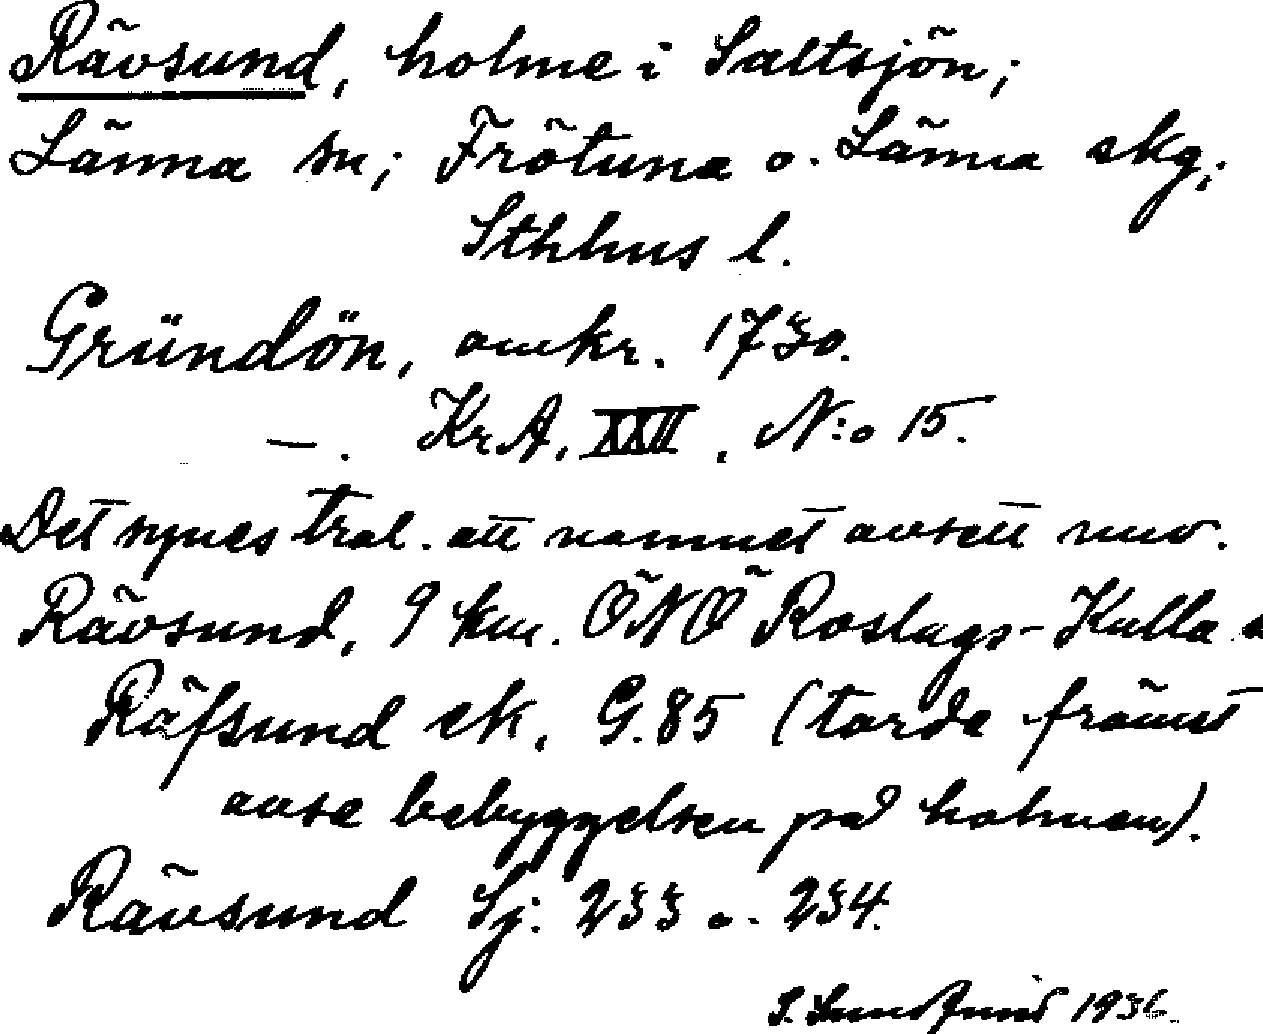 Rävsund, holme i Saltsjön;
Länna sn; Frötuna o. Länna skg;
Sthlms l.
Gründön, omkr. 1730.
—. KrA, XXII, N:o 15.
Det synes trol. att namnet avsett nuv.
Rävsund, 9 km. ÖNÖ Roslags-Kulla
Räfsund ek. G. 85 (torde främst
avse bebyggelsen på holmen).
Rävsund Sj. 233 o. 234.
S. 1936.